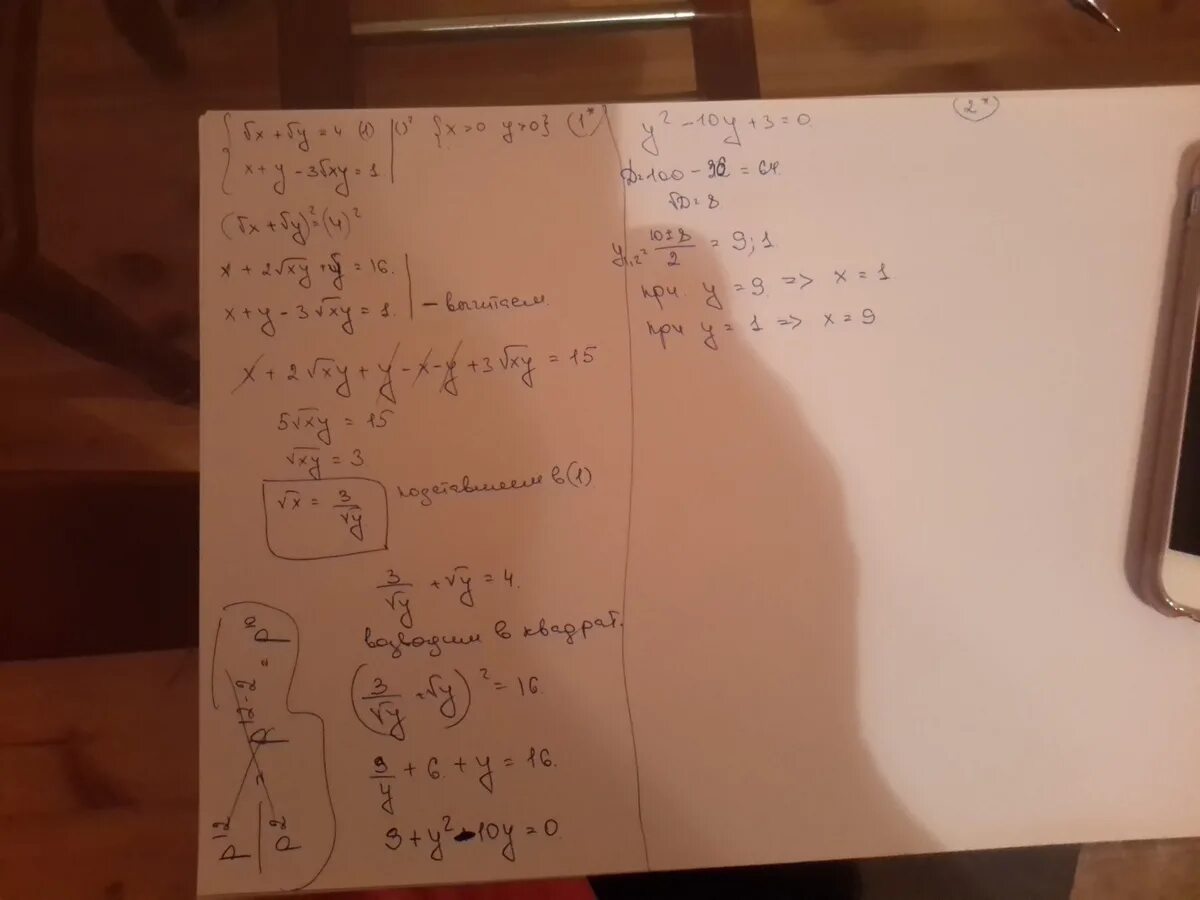 { √x + √y = 4 (1) | ( )² {x > 0 y > 0} (1*)
x + y - 3√xy = 1
(√x + √y)² = (4)²
x + 2√xy + y = 16.
x + y - 3√xy = 1. | — вычитаем.
x + 2√xy + y - x - y + 3√xy = 15
5√xy = 15
√xy = 3
√x = 3/√y подставляем в (1)
3/√y + √y = 4.
возводим в квадрат.
(3/√y + √y)² = 16.
9/y + 6 + y = 16.
9 + y² - 10y = 0
p¹²/p² = p¹²⁻² = p¹⁰
(2*)
y² - 10y + 9 = 0
D = 100 - 36 = 64.
√D = 8
y₁,₂ = 10±8/2 = 9; 1.
при y = 9 => x = 1
при y = 1 => x = 9